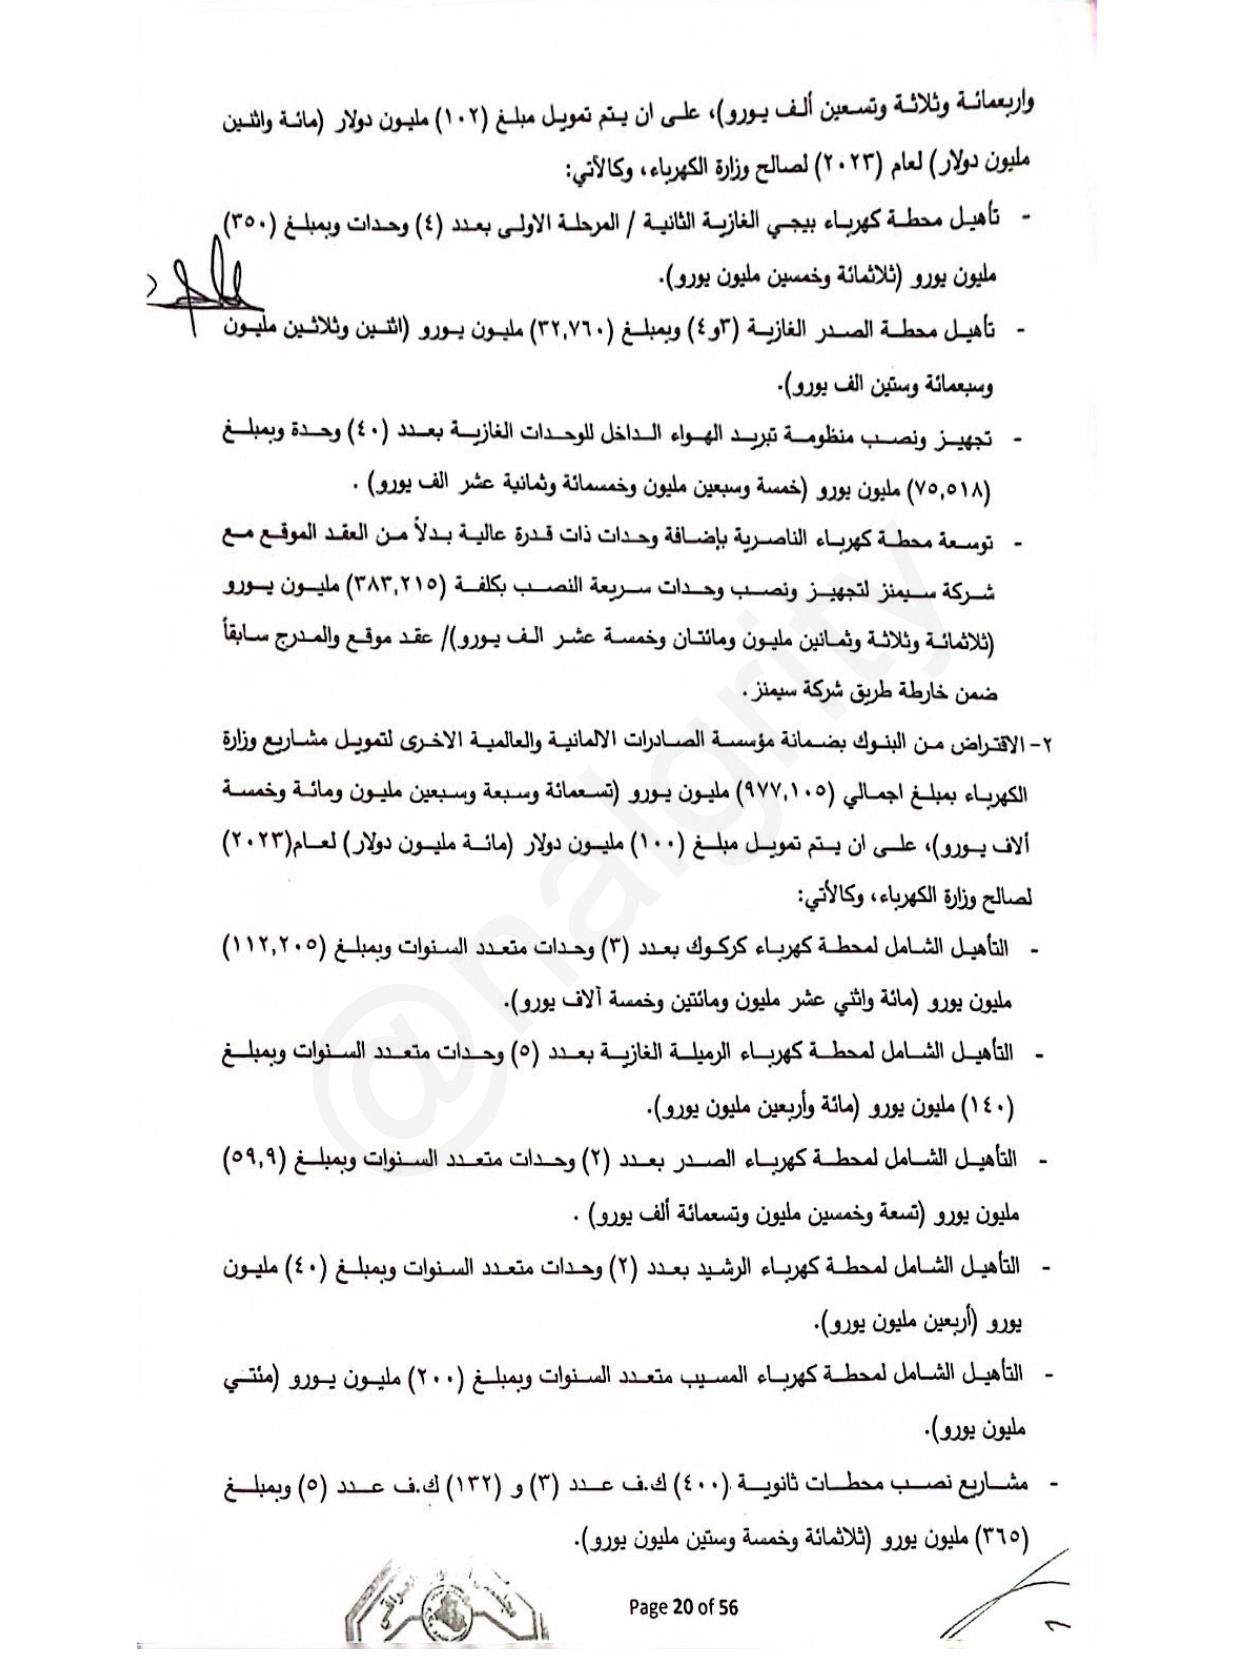 واربعمائة وثلاثة وتسعين ألف يورو)، على ان يتم تمويل مبلغ (١٠٢) مليون دولار (مائة واثنين
مليون دولار) لعام (٢٠٢٣) لصالح وزارة الكهرباء، وكالآتي:
- تأهيل محطة كهرباء بيجي الغازية الثانية / المرحلة الاولى بعدد (٤) وحدات وبمبلغ (٣٥٠)
مليون يورو (ثلاثمائة وخمسين مليون يورو).
- تأهيل محطة الصدر الغازية (٣و٤) وبمبلغ (٣٢,٧٦٠) مليون يورو (اثنين وثلاثين مليون
وسبعمائة وستين الف يورو).
- تجهيز ونصب منظومة تبريد الهواء الداخل للوحدات الغازية بعدد (٤٠) وحدة وبمبلغ
(٧٥,٥١٨) مليون يورو (خمسة وسبعين مليون وخمسمائة وثمانية عشر الف يورو) .
- توسعة محطة كهرباء الناصرية بإضافة وحدات ذات قدرة عالية بدلاً من العقد الموقع مع
شركة سيمنز لتجهيز ونصب وحدات سريعة النصب بكلفة (٣٨٣,٢١٥) مليون يورو
(ثلاثمائة وثلاثة وثمانين مليون ومائتان وخمسة عشر الف يورو)/ عقد موقع والمدرج سابقاً
ضمن خارطة طريق شركة سيمنز.
٢- الاقتراض من البنوك بضمانة مؤسسة الصادرات الالمانية والعالمية الاخرى لتمويل مشاريع وزارة
الكهرباء بمبلغ اجمالي (٩٧٧,١٠٥) مليون يورو (تسعمائة وسبعة وسبعين مليون ومائة وخمسة
ألاف يورو)، على ان يتم تمويل مبلغ (١٠٠) مليون دولار (مائة مليون دولار) لعام(٢٠٢٣)
لصالح وزارة الكهرباء، وكالأتي:
- التأهيل الشامل لمحطة كهرباء كركوك بعدد (٣) وحدات متعدد السنوات وبمبلغ (١١٢,٢٠٥)
مليون يورو (مائة واثني عشر مليون ومائتين وخمسة آلاف يورو).
- التأهيل الشامل لمحطة كهرباء الرميلة الغازية بعدد (٥) وحدات متعدد السنوات وبمبلغ
(١٤٠) مليون يورو (مائة وأربعين مليون يورو).
- التأهيل الشامل لمحطة كهرباء الصدر بعدد (٢) وحدات متعدد السنوات وبمبلغ (٥٩,٩)
مليون يورو (تسعة وخمسين مليون وتسعمائة ألف يورو) .
- التأهيل الشامل لمحطة كهرباء الرشيد بعدد (٢) وحدات متعدد السنوات وبمبلغ (٤٠) مليون
يورو (أربعين مليون يورو).
- التأهيل الشامل لمحطة كهرباء المسيب متعدد السنوات وبمبلغ (٢٠٠) مليون يورو (مئتي
مليون يورو).
- مشاريع نصب محطات ثانوية (٤٠٠) ك.ف عدد (٣) و (١٣٢) ك.ف عدد (٥) وبمبلغ
(٣٦٥) مليون يورو (ثلاثمائة وخمسة وستين مليون يورو).
Page 20 of 56
@nalgrity